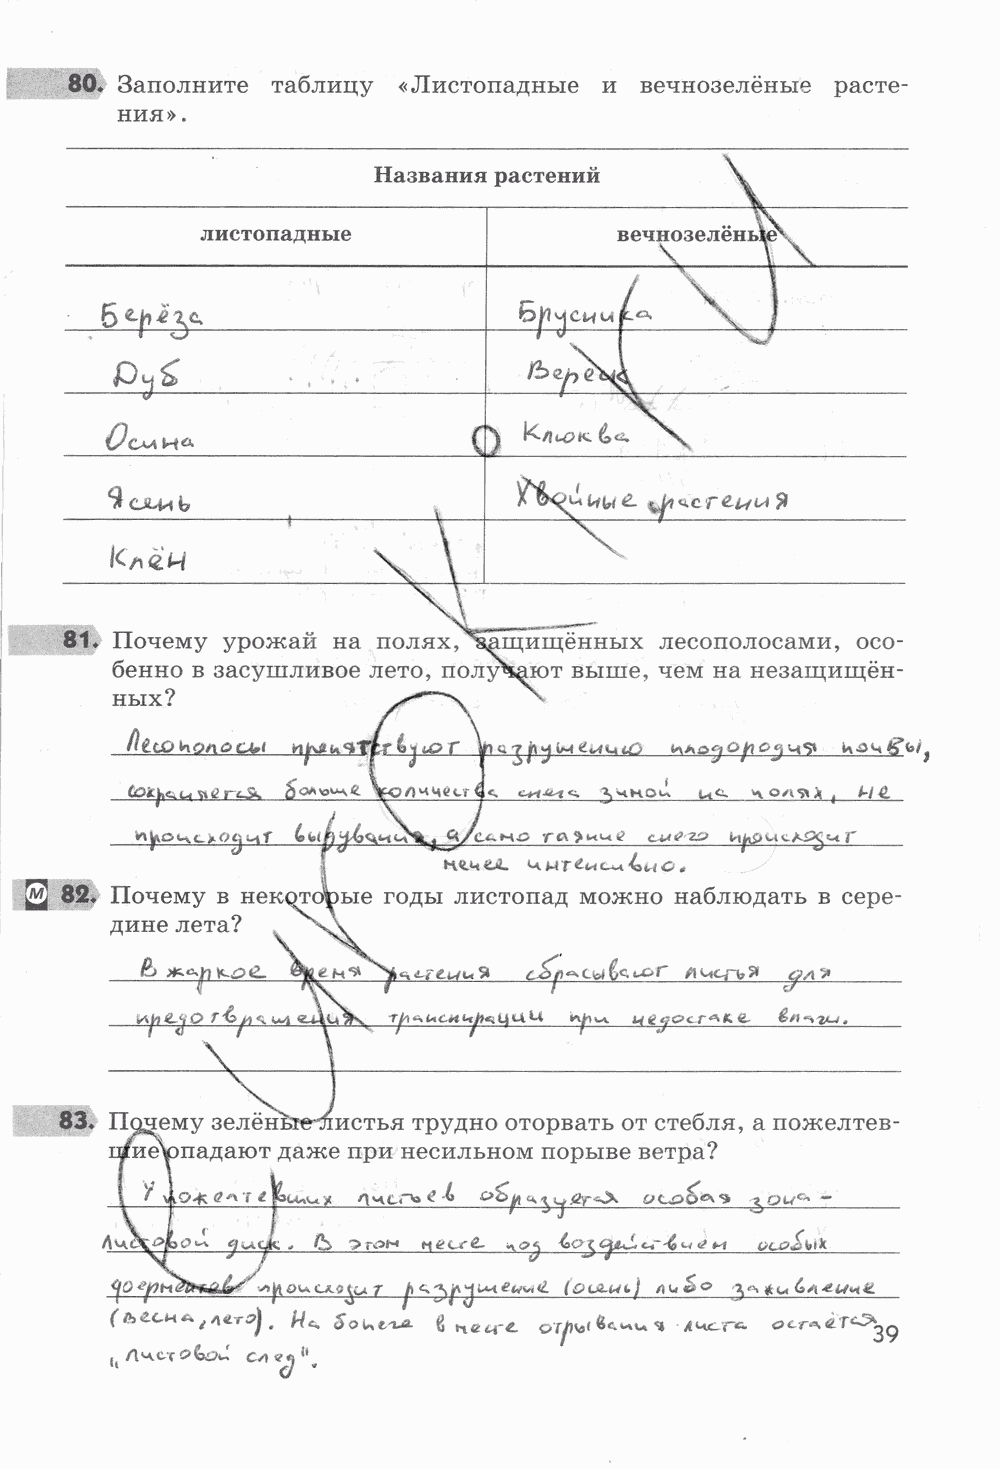 80. Заполните таблицу «Листопадные и вечнозелёные расте-
ния».
Названия растений
листопадные вечнозелёные
Берёза Брусника
Дуб Вереск
Осина Клюква
Ясень Хвойные растения
Клён
81. Почему урожай на полях, защищённых лесополосами, осо-
бенно в засушливое лето, получают выше, чем на незащищён-
ных?
Лесополосы препятствуют разрушению плодородия почвы,
сохраняется больше количества снега зимой на полях, не
происходит выдувания, а само таяние снего происходит
менее интенсивно.
М 82. Почему в некоторые годы листопад можно наблюдать в сере-
дине лета?
В жаркое время растения сбрасывают листья для
предотвращения транспирации при недостаке влаги.
83. Почему зелёные листья трудно оторвать от стебля, а пожелтев-
шие опадают даже при несильном порыве ветра?
У пожелтевших листьев образуется особая зона -
листовой диск. В этом месте под воздействием особых
ферментов происходит разрушение (осень) либо заживление
(весна, лето). На в месте отрывания листа остаётся
„листовой след".
39